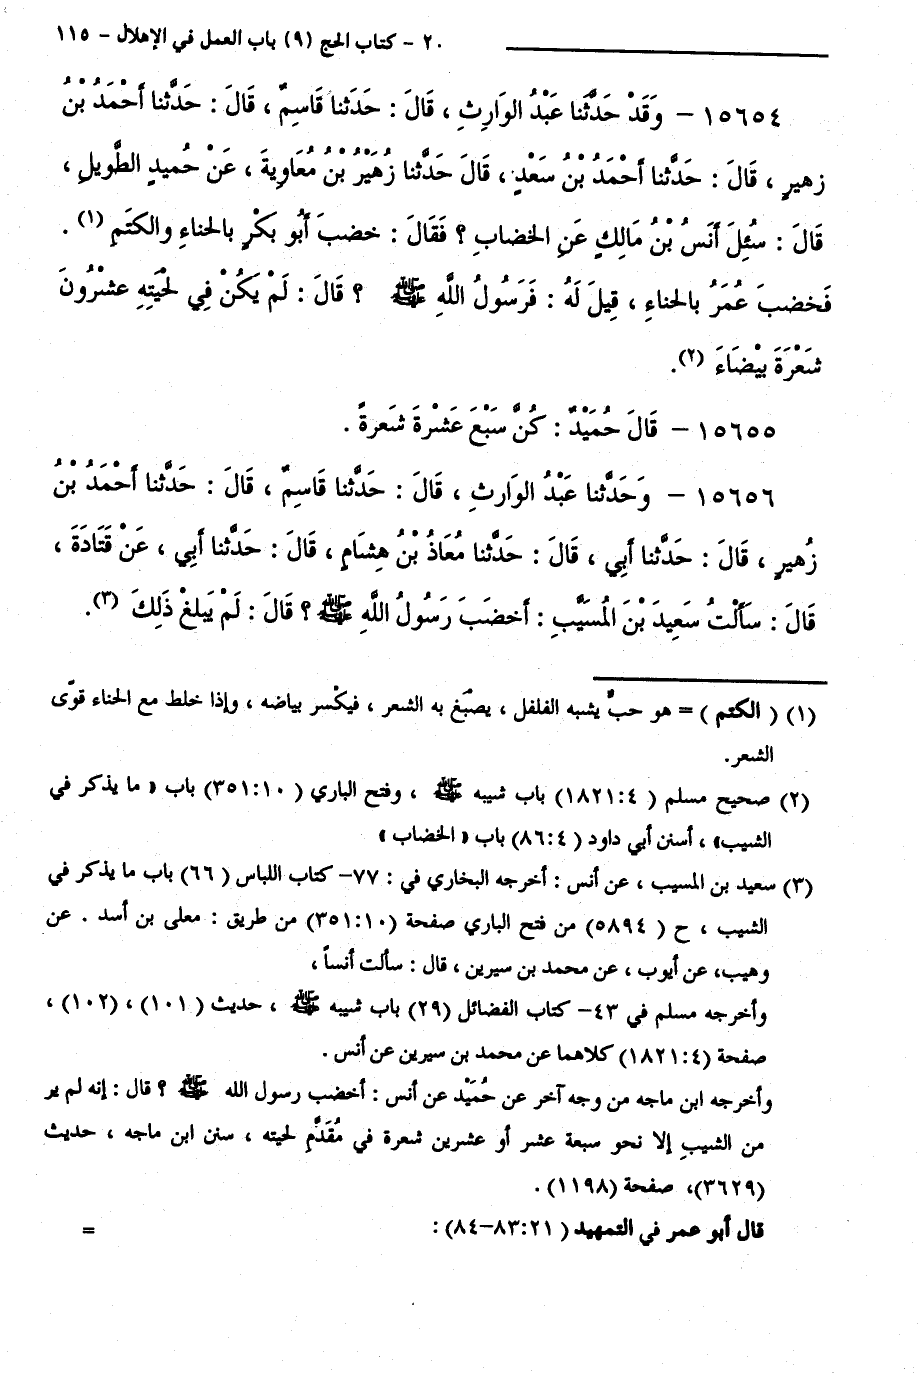 ٢٠ – كتاب الحج (٩) باب العمل في الإهلال – ١١٥
١٥٦٥٤ – وَقَدْ حَدَّثَنا عَبْدُ الوَارِثِ ، قَالَ : حَدَّثَنا قَاسِمٌ ، قَالَ : حَدَّثَنا أَحْمَدُ بْنُ
زهيرٍ ، قَالَ : حَدَّثَنا أَحْمَدُ بْنُ سَعْدٍ ، قَالَ حَدَّثَنا زُهَيْرُ بْنُ مُعَاوِيةَ ، عَنْ حُميدٍ الطَّويلِ ،
قَالَ : سُئِلَ أَنَسُ بْنُ مَالِكٍ عَنِ الخضابِ ؟ فَقَالَ : خضبَ أَبُو بكْرٍ بالحناءِ والكتَمِ (١) .
فَخضبَ عُمَرُ بالحناءِ ، قِيلَ لَهُ : فَرَسُولُ اللَّهِ ﷺ ؟ قَالَ : لَمْ يَكُنْ فِي لحْيَتِهِ عشْرُونَ
شَعْرَةَ بيْضَاءَ (٢).
١٥٦٥٥ – قَالَ حُمَيْدٌ : كُنَّ سَبْعَ عَشْرةَ شَعرةً .
١٥٦٥٦ – وَحَدَّثَنا عَبْدُ الوَارثِ ، قَالَ : حَدَّثَنا قَاسِمٌ ، قَالَ : حَدَّثَنا أَحْمَدُ بْنُ
زُهيرٍ ، قَالَ : حَدَّثَنا أَبِي ، قَالَ : حَدَّثَنا مُعَاذُ بْنُ هِشَامٍ ، قَالَ : حَدَّثَنا أَبِي ، عَنْ قَتَادَةَ ،
قَالَ : سَأَلْتُ سَعِيدَ بْنَ الْمُسَيَّبِ : أَخضَبَ رَسُولُ اللَّهِ ﷺ ؟ قَالَ : لَمْ يَبلغْ ذَلِكَ (٣).
(١) ( الكتم ) = هو حبٌ يشبه الفلفل ، يصبَغ به الشعر ، فيكْسر بياضه ، وإذا خلط مع الحناء قوّى
الشعر.
(٢) صحيح مسلم ( ١٨٢١:٤) باب شيبه ﷺ ، وفتح الباري ( ٣٥١:١٠) باب « ما يذكر في
الشيب» ، أسنن أبي داود ( ٨٦:٤) باب « الخضاب »
(٣) سعيد بن المسيب ، عن أنس : أخرجه البخاري في : ٧٧– كتاب اللباس ( ٦٦) باب ما يذكر في
الشيب ، ح ( ٥٨٩٤) من فتح الباري صفحة (٣٥١:١٠) من طريق : معلى بن أسد . عن
وهيب، عن أيوب ، عن محمد بن سيرين ، قال : سألت أنساً ،
وأخرجه مسلم في ٤٣– كتاب الفضائل (٢٩) باب شيبه ﷺ ، حديث ( ١٠١) ، (١٠٢) ،
صفحة (١٨٢١:٤) كلاهما عن محمد بن سيرين عن أنس .
وأخرجه ابن ماجه من وجه آخر عن حُمَيْد عن أنس : أخضب رسول الله ﷺ ؟ قال : إنه لم ير
من الشيبِ إلا نحو سبعة عشر أو عشرين شعرة في مُقَدَّمِ لحيته ، سنن ابن ماجه ، حديث
(٣٦٢٩)، صفحة (١١٩٨) .
قال أبو عمر في التمهيد ( ٨٣:٢١–٨٤) : =